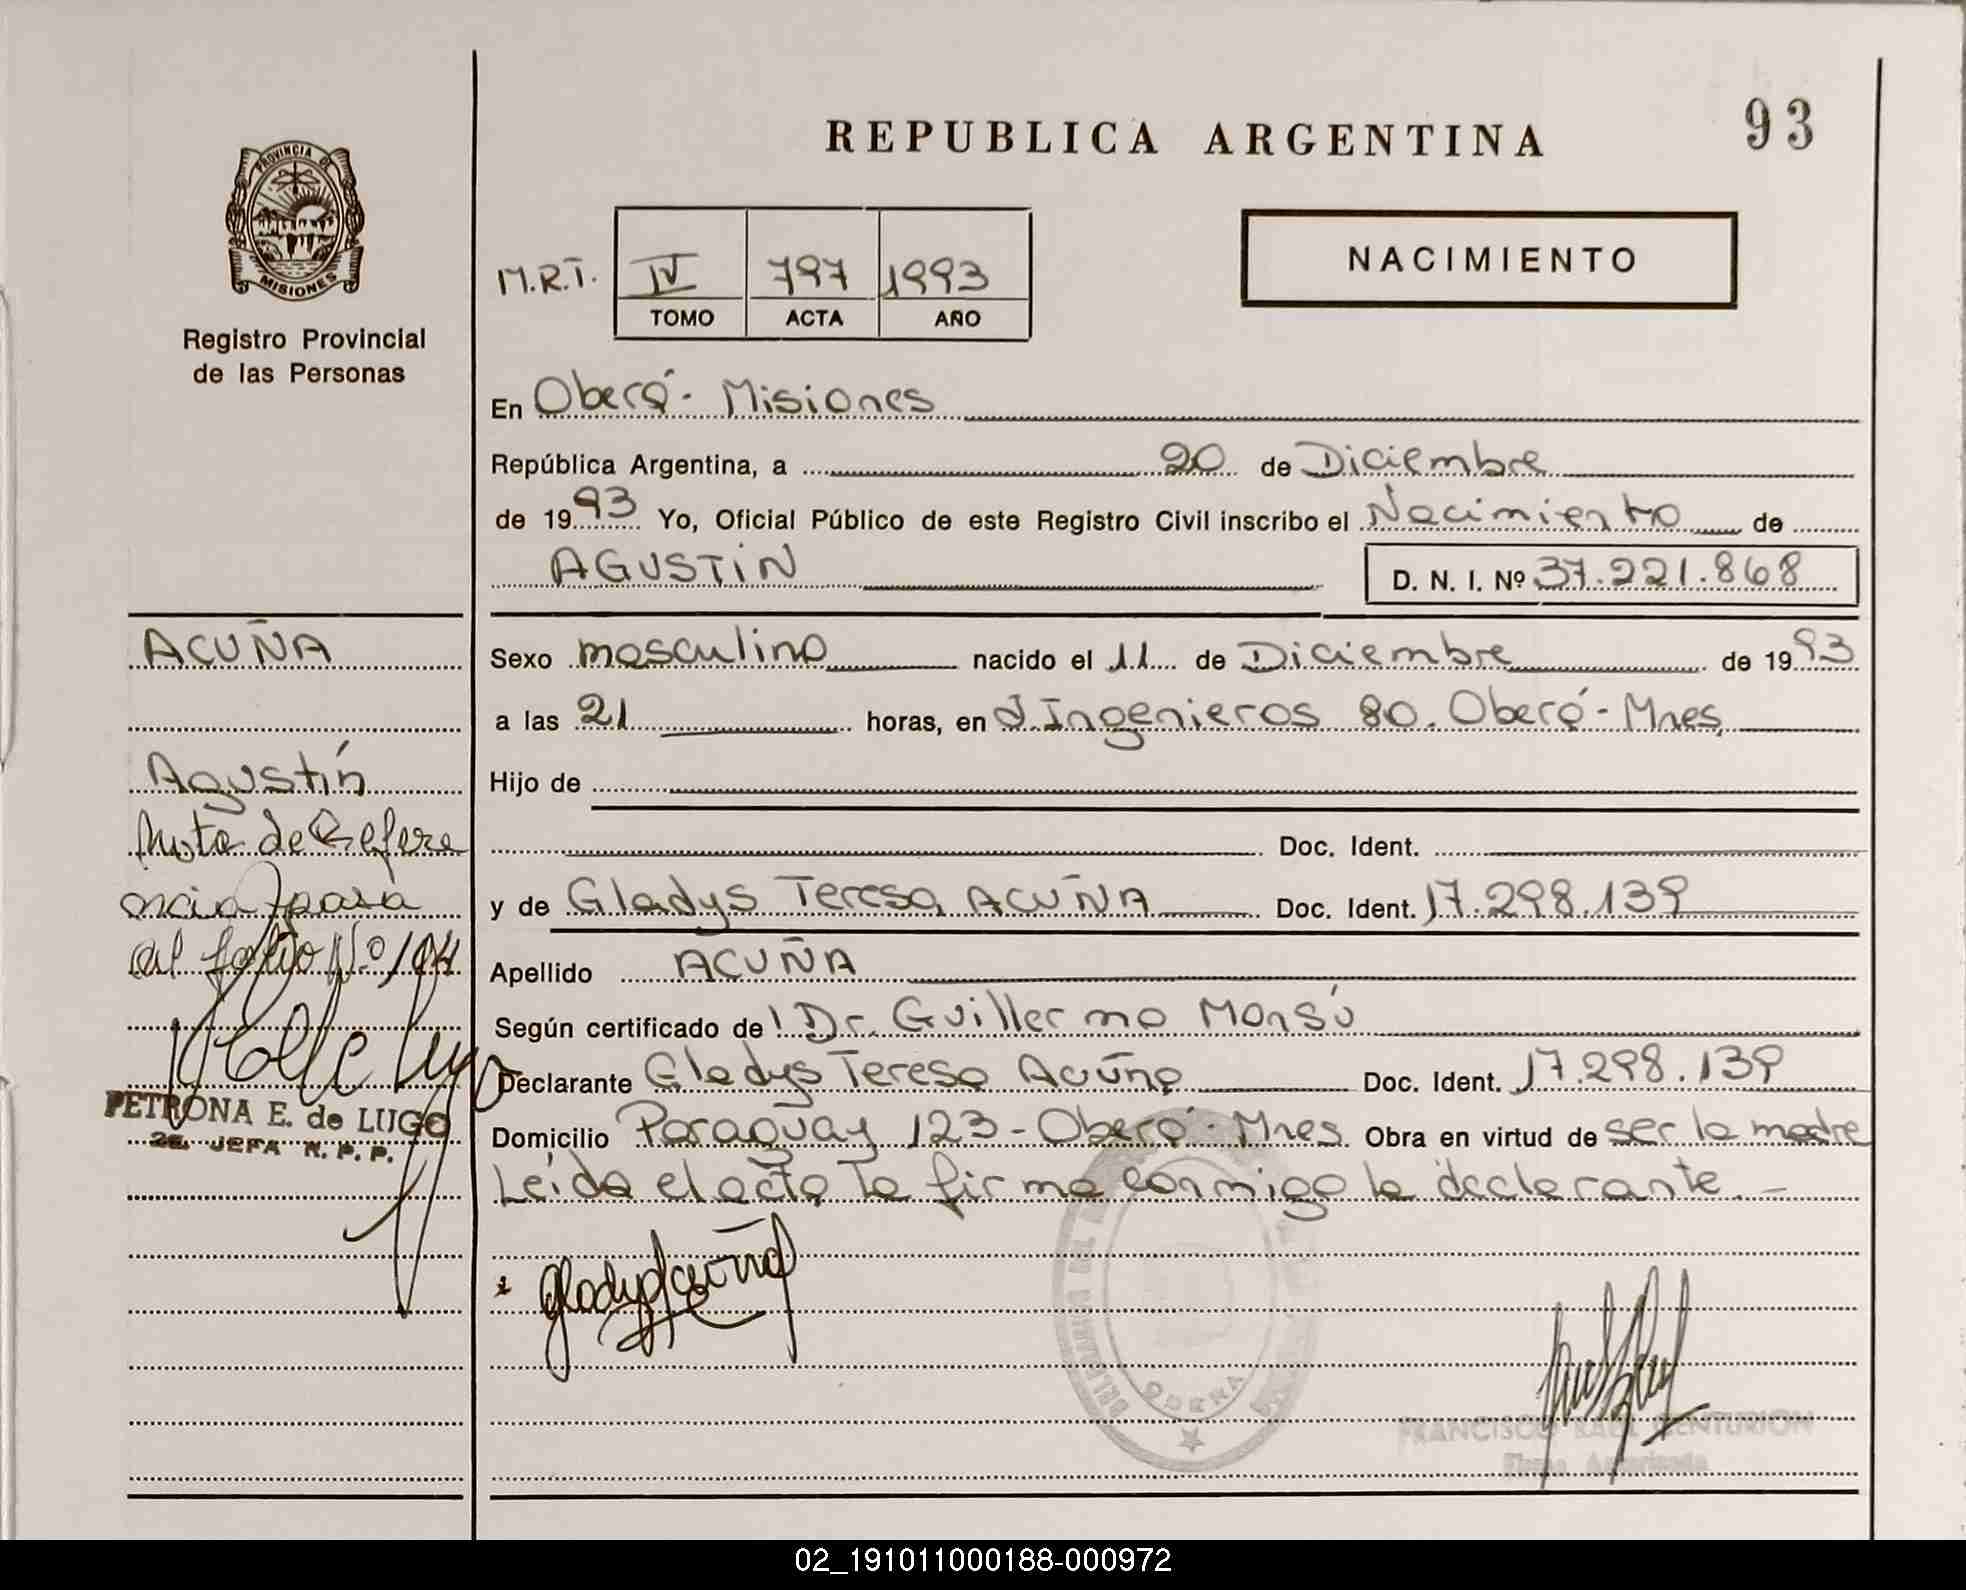 REPUBLICA ARGENTINA
93
PROVINCIA DE
MISIONES
Registro Provincial
de las Personas
M.R.T. IV 797 1993
TOMO ACTA AÑO
NACIMIENTO
En Oberá - Misiones
República Argentina, a 20 de Diciembre
de 1993 Yo, Oficial Público de este Registro Civil inscribo el Nacimiento de
AGUSTÍN D. N. I. Nº 37.221.868
ACUÑA
Sexo masculino nacido el 11 de Diciembre de 1993
a las 21 horas, en J. Ingenieros 80. Oberá - Mnes.
Agustín
Hijo de
Nota de Refere
Doc. Ident.
ncia pasa
y de Gladys Teresa ACUÑA Doc. Ident. 17.298.139
al folio Nº 194
Apellido ACUÑA
Según certificado de Dr. Guillermo Monsú
Declarante Gladys Teresa Acuña Doc. Ident. 17.298.139
PETRONA E. de LUGO
2a. JEFA R. P. P.
Domicilio Paraguay 123 - Oberá - Mnes. Obra en virtud de ser la madre
Leída el acta la firma conmigo la declarante. -
Gladys Acuña
OBERA
FRANCISCO RAUL CENTURION
Firma Autorizada
02_191011000188-000972